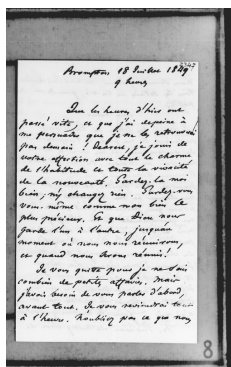 Brompton 18 Juillet 1849
9 heures
Que les heures d'hier ont
passé vite, ce que j'ai de peine à
me persuader que je ne les retrouverai
pas demain ! Dearest, je jouis de
votre affection avec tout le charme
de l'habitude et toute la vivacité
de la nouveauté. Gardez-la moi
bien, n'y changez rien. Gardez-vous
vous-même comme mon bien le
plus précieux. Et que Dieu nous
garde l'un à l'autre, jusqu'au
moment où nous nous réunirons,
et quand nous serons réunis !
Je vous quitte pour je ne sais
combien de petites affaires. Mais
j'avais besoin de vous parler d'abord,
avant tout. Je vous reviendrai tout
à l'heure. N'oubliez pas ce que nous
8